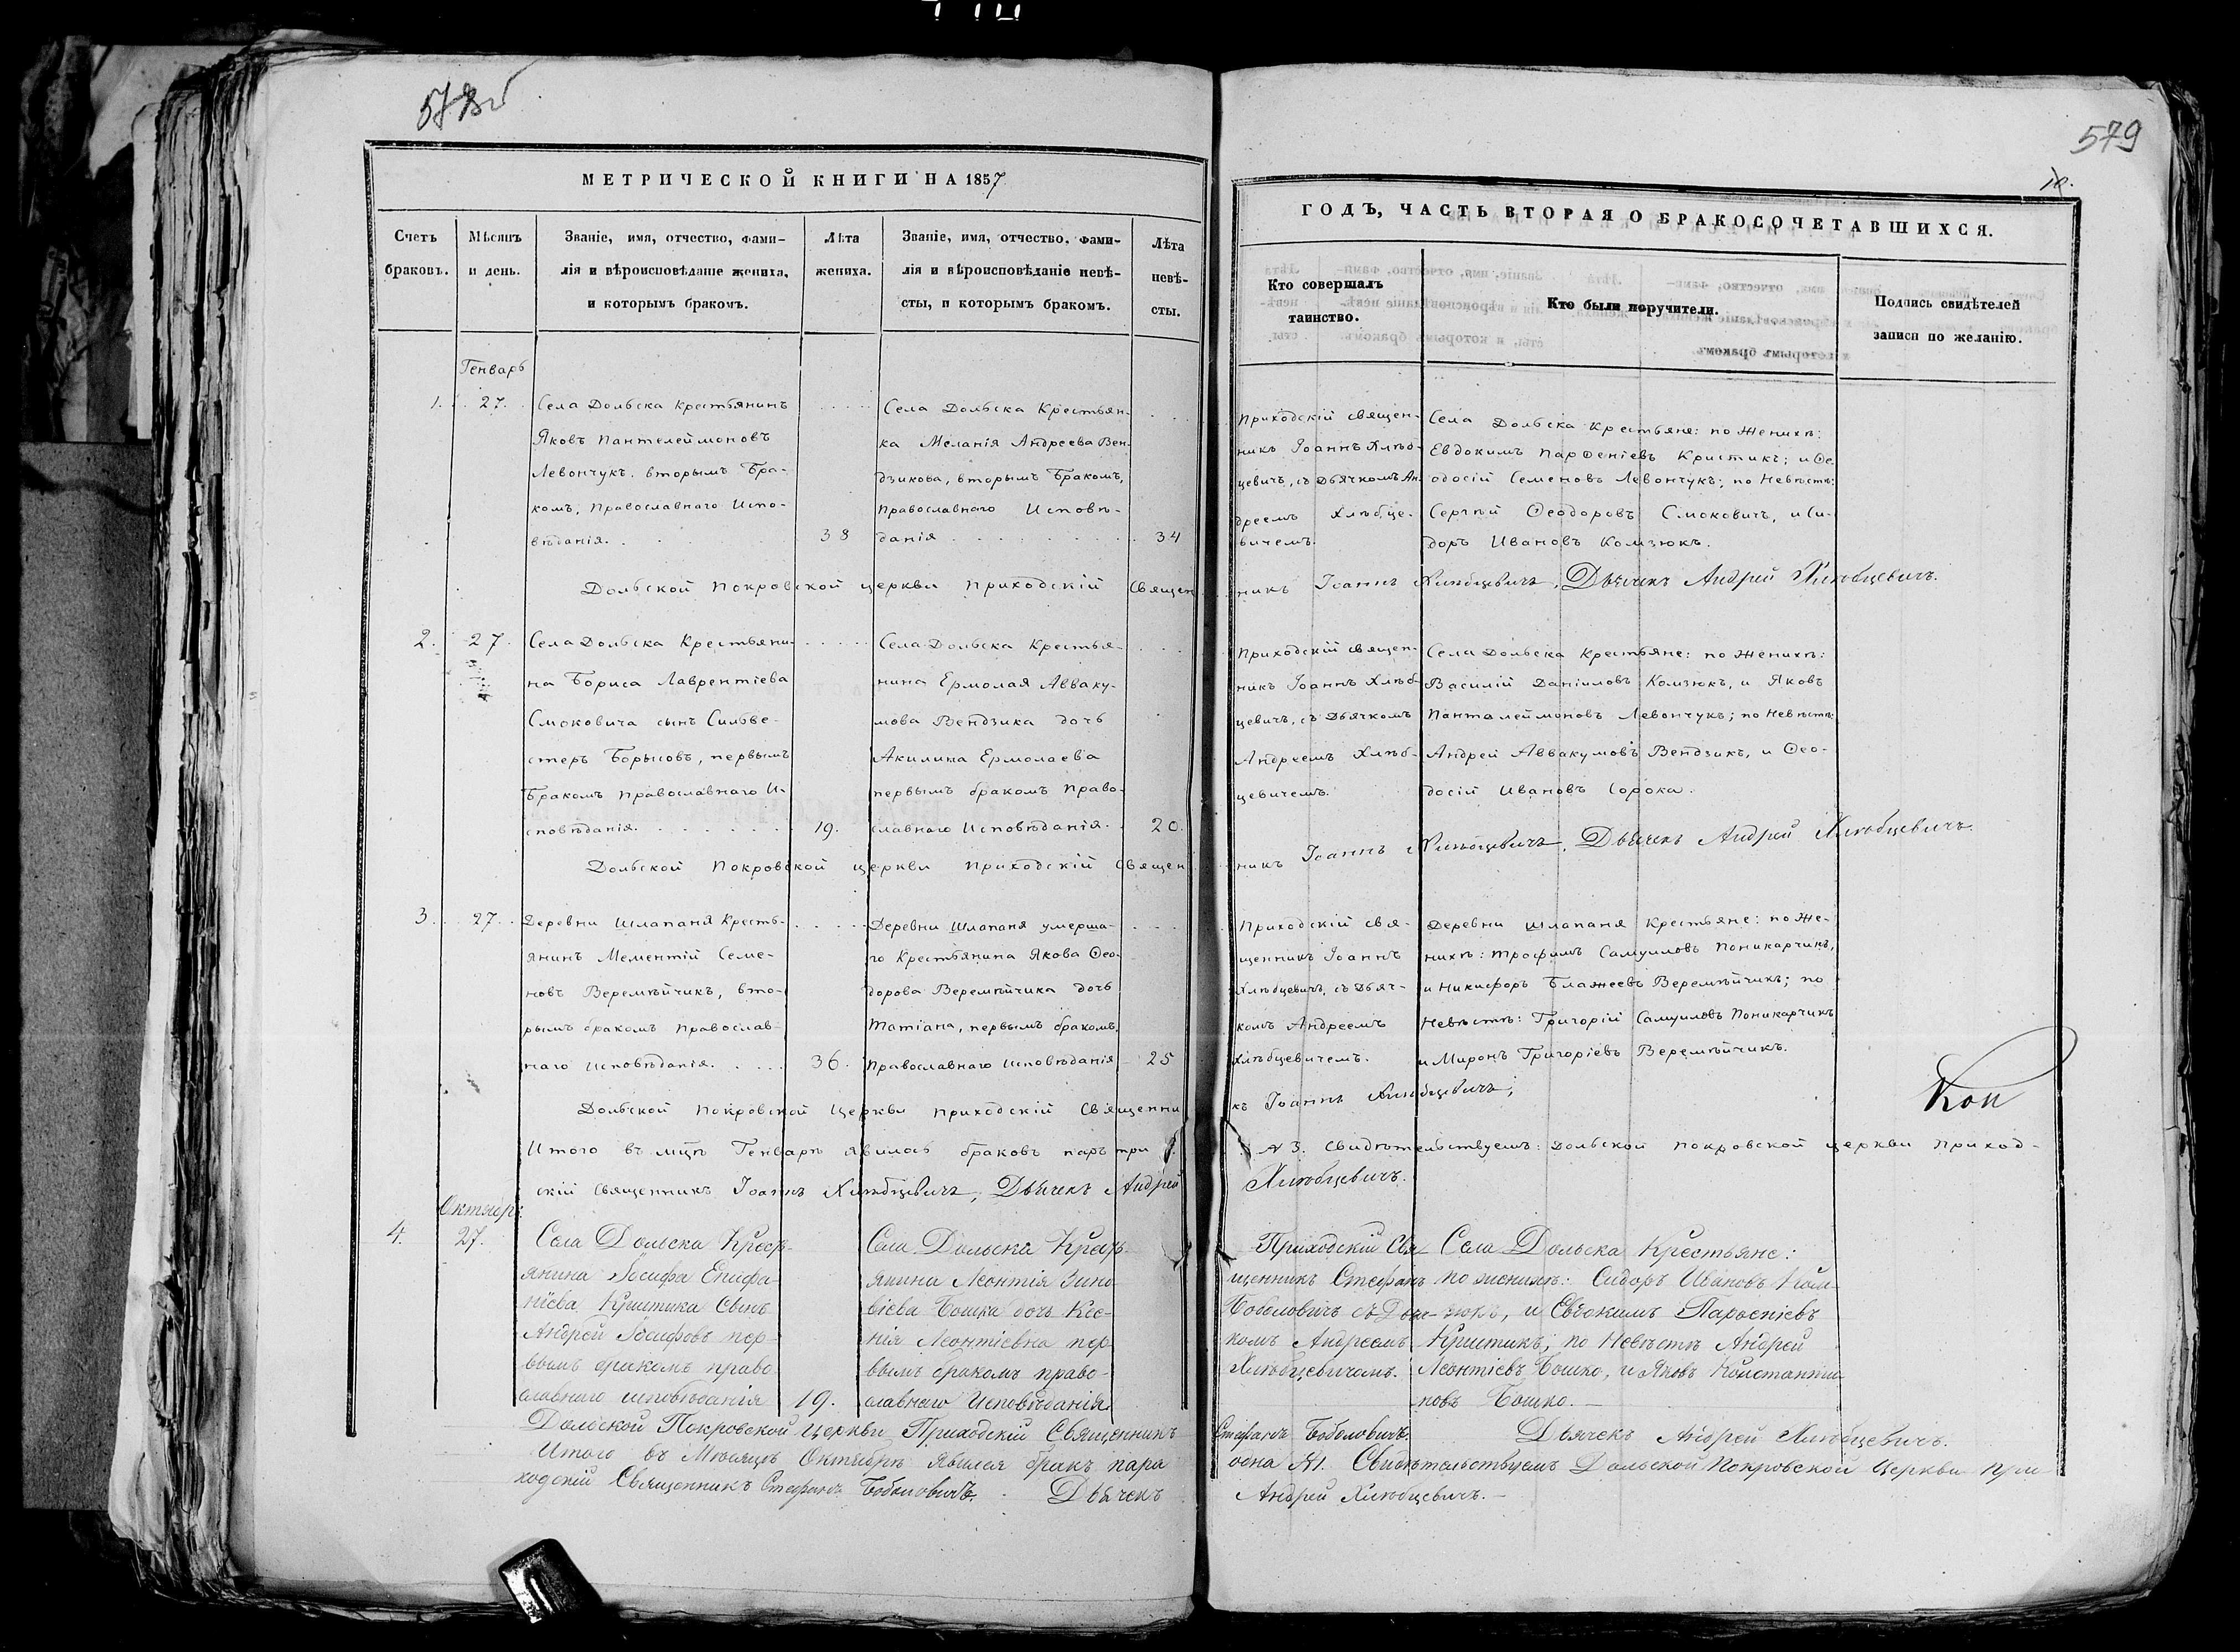 579
МЕТРИЧЕСКОЙ КНИГИ НА 1857
Счетъ браковъ.
Мѣсяцъ и день.
Званіе, имя, отчество, фами-
лія и вѣроисповѣданіе жениха,
и которымъ бракомъ.
Лѣта
жениха.
Званіе, имя, отчество, фами-
лія и вѣроисповѣданіе невѣ-
сты, и которымъ бракомъ.
Лѣта
невѣ-
сты.
ГОДЪ, ЧАСТЬ ВТОРАЯ О БРАКОСОЧЕТАВШИХСЯ.
Кто совершалъ
таинство.
Кто были поручители.
Подпись свидѣтелей
записи по желанію.
Генварь
1. 27.
Села Дольска Крестьянинъ
Яковъ Пантелеймоновъ
Левончукъ. вторымъ Бра-
комъ, Православнаго Испо-
вѣданія.
38
Села Дольска Крестьян-
ка Меланія Андреева Вен-
дзикова, вторымъ Бракомъ,
Православнаго Исповѣ-
данія
34
Приходскій священ-
никъ Іоаннъ Хлѣб-
цевичъ, съ Дьячкомъ Ан-
дреемъ Хлѣбце-
вичемъ.
Села Дольска Крестьяне: по Женихѣ:
Евдокимъ Парѳеніевъ Криштикъ; и Ѳе-
одосій Семеновъ Левончукъ; по Невѣстѣ:
Сергѣй Ѳеодоровъ Смоковичъ, и Си-
доръ Ивановъ Комзюкъ.
Дольской Покровской церкви Приходскій Священ
никъ Іоаннъ Хлѣбцевичъ, Дьячекъ Андрей Хлѣбцевичъ.
2. 27.
Села Дольска Крестьяни-
на Бориса Лаврентіева
Смоковича сынъ Сильве-
стеръ Борысовъ, первымъ
Бракомъ Православнаго И-
сповѣданія.
19.
Села Дольска Крестья-
нина Ермолая Авваку-
мова Вендзика дочь
Акилина Ермолаева
первымъ бракомъ Право-
славнаго Исповѣданія.
20.
Приходскій священ-
никъ Іоаннъ Хлѣб-
цевичъ, съ Дьячкомъ
Андреемъ Хлѣб-
цевичемъ.
Села Дольска Крестьяне: по Женихѣ:
Василій Даніиловъ Комзюкъ, и Яковъ
Панталеймоновъ Левончукъ; по Невѣстѣ:
Андрей Аввакумовъ Вендзикъ, и Ѳео-
досій Ивановъ Сорока.
Дольской Покровской церкви Приходскій Священ
никъ Іоаннъ Хлѣбцевичъ, Дьячекъ Андрей Хлѣбцевичъ.
3. 27.
Деревни Шлапаня Кресть-
янинъ Мементій Семе-
новъ Веремѣйчикъ, вто-
рымъ бракомъ Православ-
наго Исповѣданія.
36.
Деревни Шлапаня умерша-
го Крестьянина Якова Ѳео-
дорова Веремѣйчика дочь
Татіана, первымъ бракомъ,
Православнаго Исповѣданія
25
Приходскій свя-
щенникъ Іоаннъ
Хлѣбцевичъ, съ Дьяч-
комъ Андреемъ
Хлѣбцевичемъ.
Деревни Шлапаня Крестьяне: по Же-
нихѣ: Трофимъ Самуиловъ Поникарчикъ,
и Никифоръ Блажеевъ Веремѣйчикъ; по
Невѣстѣ: Григорій Самуиловъ Поникарчикъ
и Миронъ Григоріевъ Веремѣйчикъ.
Дольской Покровской Церкви Приходскій Священни
къ Іоаннъ Хлѣбцевичъ;
Итого въ мцѣ Генварѣ явилось браковъ паръ три
№ 3. Свидѣтельствуемъ: Дольской Покровской церкви Приход-
скій Священникъ Іоаннъ Хлѣбцевичъ, Дьячекъ Андрей
Хлѣбцевичъ.
Октябр:
4. 27.
Села Дольска Крест-
янина Іосифа Епифа-
ніева Криштика Сынъ
Андрей Іосифовъ пер-
вымъ бракомъ право-
славнаго исповѣданія
19.
Села Дольска Крест-
янина Леонтія Зино-
віева Бошка дочь Ксе-
нія Леонтіевна пер-
вымъ бракомъ право-
славнаго Исповѣданія
Приходскій Свя-
щенникъ Стефанъ
Боболовичъ съ Дьяч-
комъ Андреемъ
Хлѣбцевичемъ.
Села Дольска Крестьяне:
по женихѣ: Сидоръ Ивановъ Ком-
зюкъ, и Евдокимъ Парѳеніевъ
Криштикъ; по Невѣстѣ Андрей
Леонтіевъ Бошко, и Яковъ Константи-
новъ Бошко.
Дольской Покровской Церкви Приходскій Священникъ
Стефанъ Боболовичъ. Дьячекъ Андрей Хлѣбцевичъ.
Итого въ Мѣсяцѣ Октябрѣ явился бракъ пара
одна №1. Свидѣтельствуемъ Дольской Покровской Церкви При-
ходскій Священникъ Стефанъ Боболовичъ. Дьячекъ
Андрей Хлѣбцевичъ.